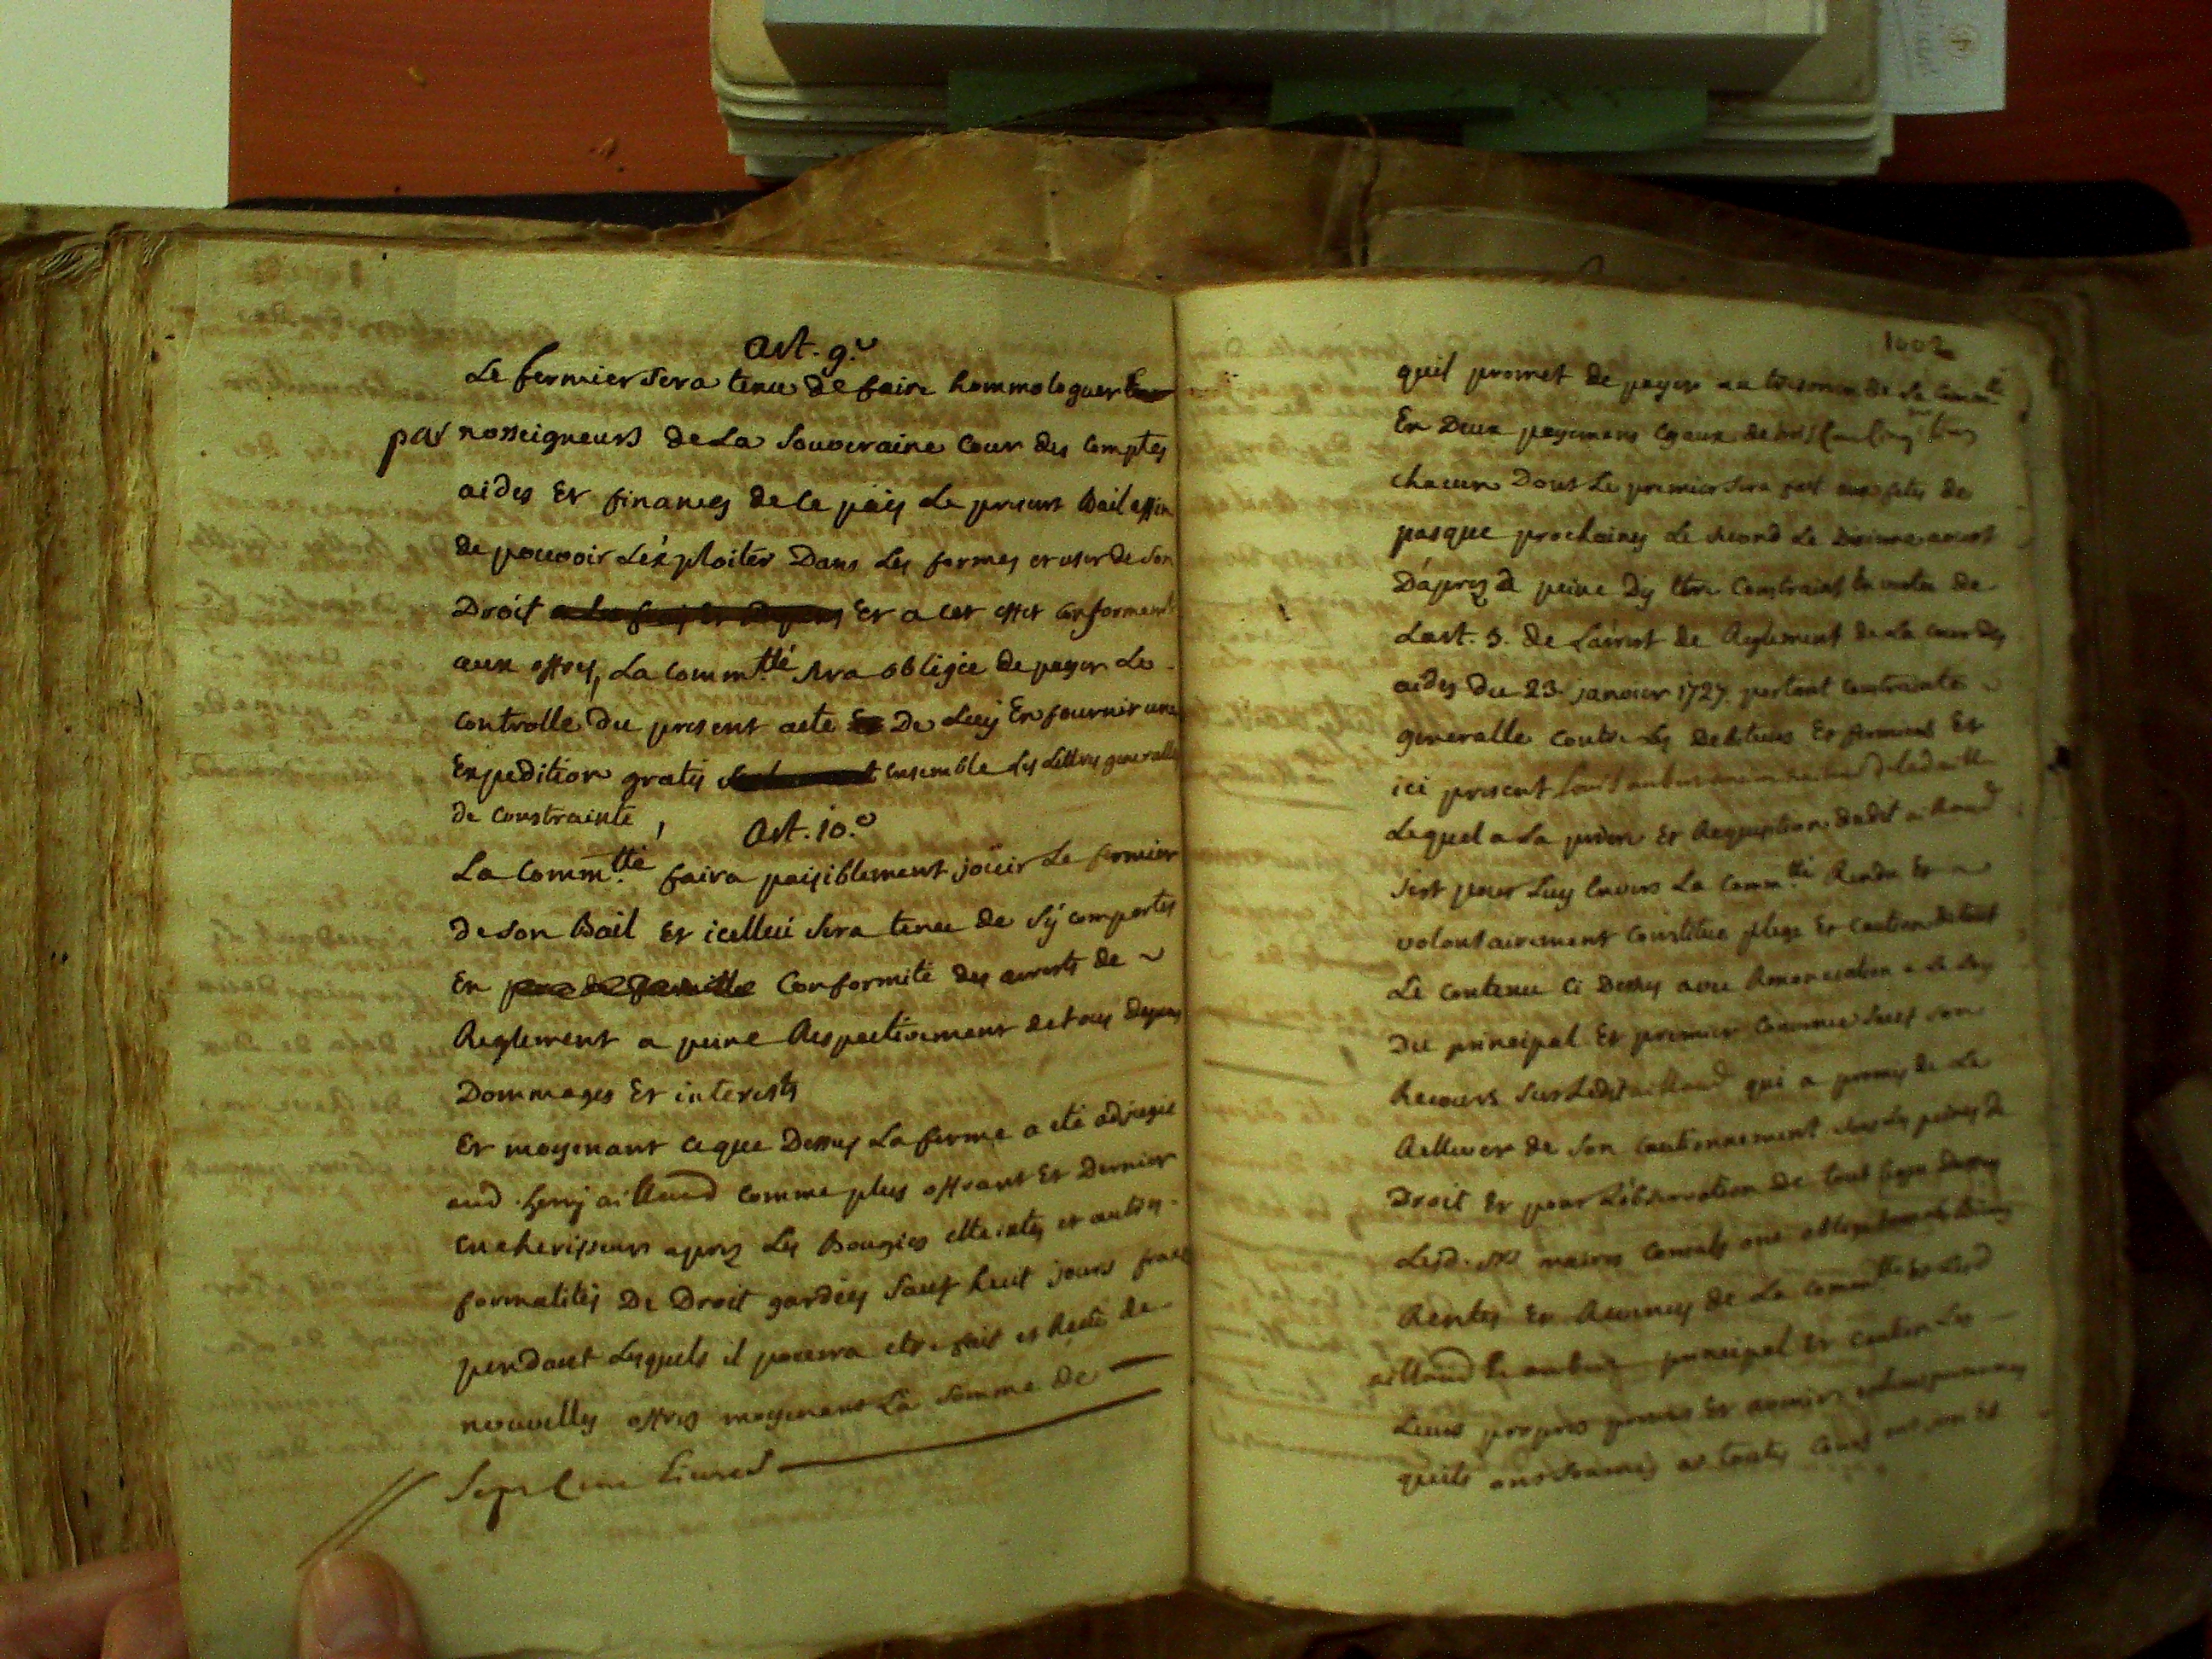 art. 9.e
Le fermier sera tenu de faire hommologuer
par nosseigneurs de La Souveraine Cour des Comptes
aides Et finances de ce païs Le present Bail affin
de pouvoir L'éxploiter Dans Les formes et user de son
Droit Et a cet effet conformemt
aux offres, La Comm.tté sera obligée de payer Le
controlle du present acte De Luy En fournir une
Expedition gratis ensemble Les Lettres generalles
de constrainte,
Art. 10.e
La Comm.tté faira paisiblement joüir Le fermier
de son Bail Et icellui sera tenu de s'y comporter
En pere de famille Conformité des arrests de
Reglement a peine Respectivement de tous depens
Dommages Et interests
Et moyenant ce que Dessus La ferme a eté adjugée
aud. Henry aillaud comme plus offrant Et Dernier
encherisseur apres Les Bougies etteintes et autres
formalités De Droit gardées sauf huit jours francs
pendant Lesquels il pourra etre fait et Reçu de
nouvelles offres moyenant La somme de
Sept Cens Livres
1002
quil promet de payer au tresorier de La Commtté
En Deux payemens egaux de
chacun Dont Le premier sera fait aux fetes de
pasque prochaines Le second Le avant
D'apres a peine D'y Etre Constraint En vertu de
L'art. 5. de L'arrest de Reglement de La Cour des
aides Du 23. janvier 1727. portant Contrainte
generalle contre Les Debiteurs Et fermiers Et
ici present Louis
Lequel a La priere Et Requisition dudit aillaud
s'est pour Luy Envers La Comm.tté Rendu Et
volontairement Constitué plege Et Caution de tout
Le contenu Ci Dessus avec Renonciation a La Loy
Du principal Et premier Convenu sauf son
Recours sur Ledit aillaud qui a promis de Le
Rellever de son Cautionnement sous Les peines de
Droit Et pour L'observation De tout ce que Dessus
Lesd. srs maires Consuls ont obligé tous Les Biens
Rentes Et Revenus de La Comm.tté Et Lesd
aillaud Et principal Et Caution Les
Leurs propres presens Et avenir
quils ont soumis a toutes Cours